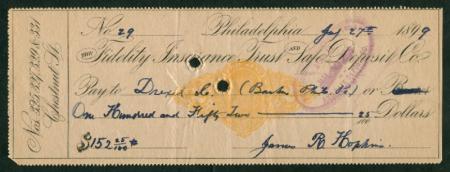 No. 29 Philadelphia July 27th 1899
THE Fidelity Insurance, Trust AND Safe Deposit Co.
Nos. 325, 327, 329 & 331
Chestnut St.
Pay to Drexel & Co (Bank Phila Pa) or
One Hundred and Fifty Two 25/100 Dollars
$152 25/100
James R. Hopkins